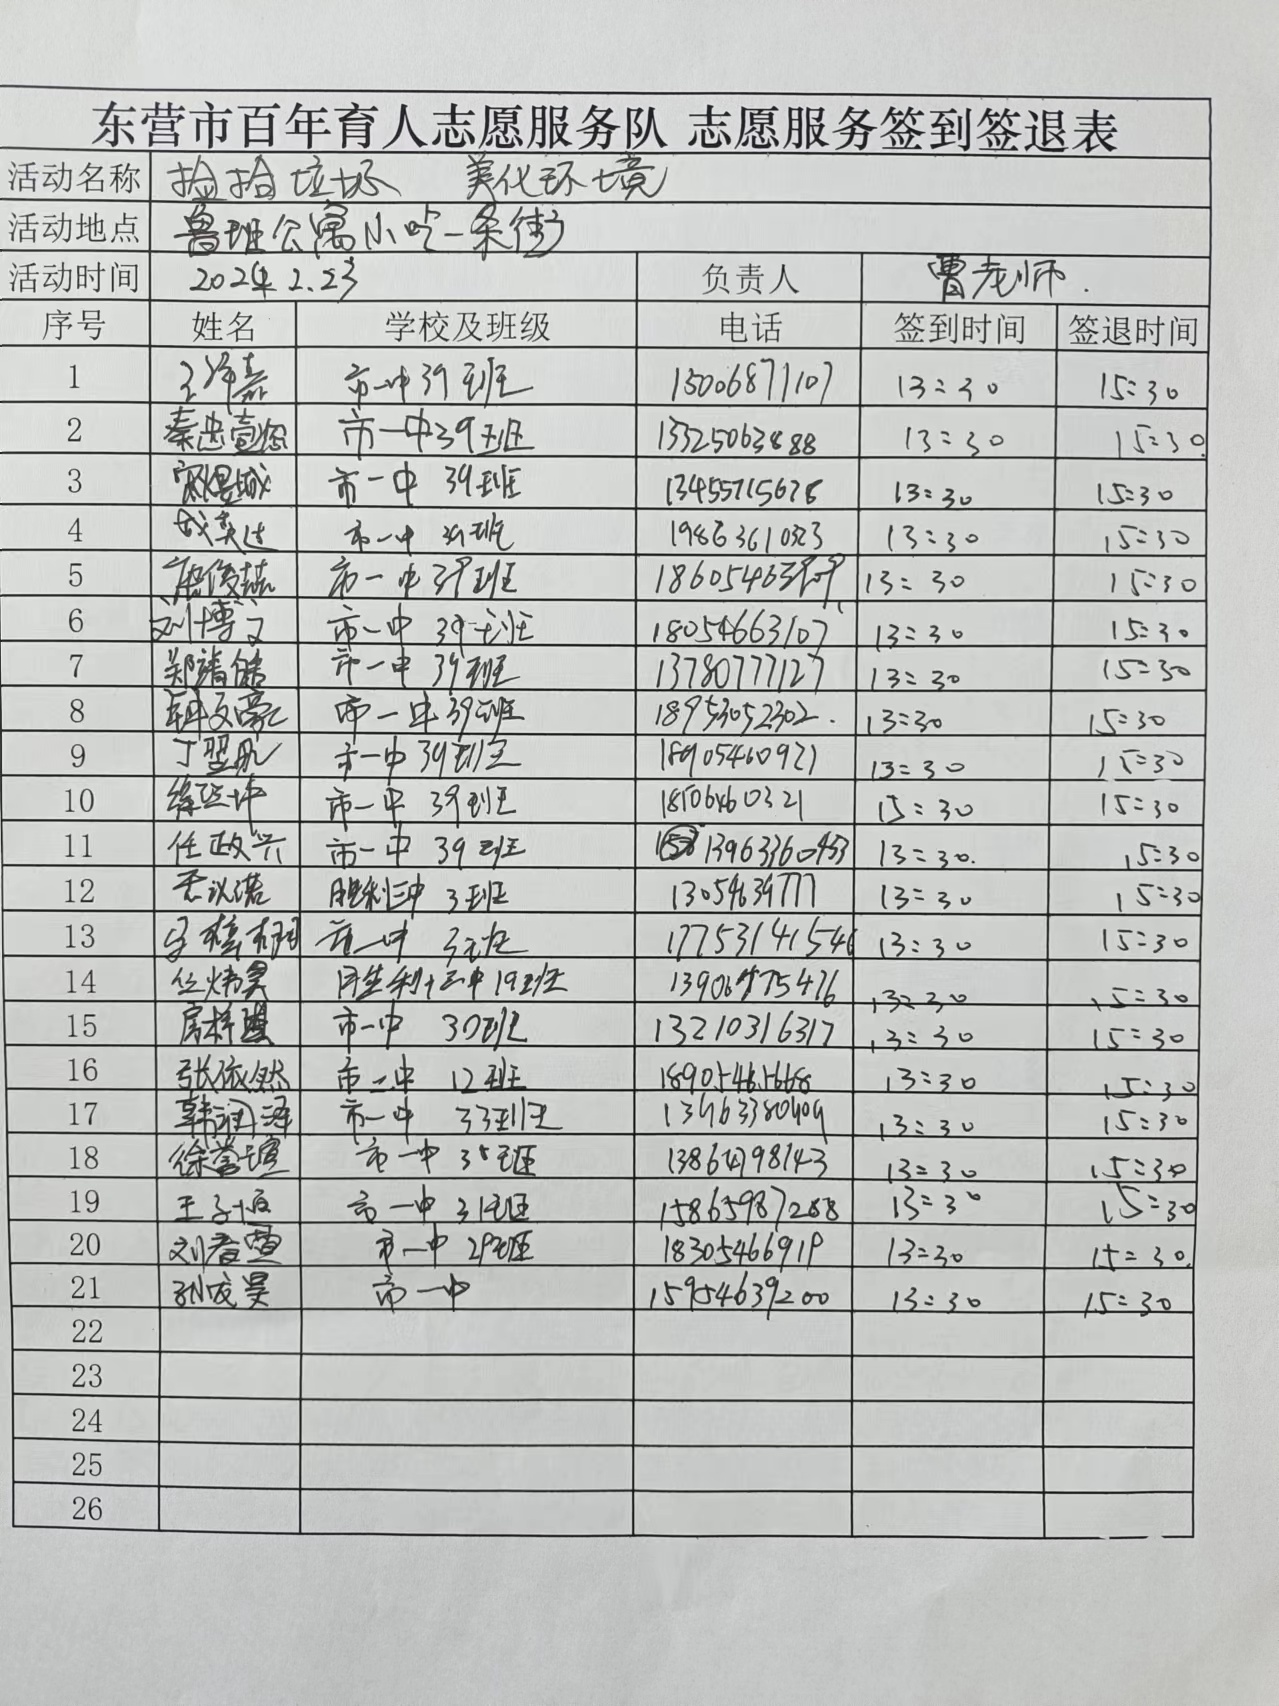 东营市百年育人志愿服务队 志愿服务签到签退表
活动名称 捡拾垃圾 美化环境
活动地点 鲁班公寓小吃一条街
活动时间 2024.2.23 负责人 曹老师.
序号 姓名 学校及班级 电话 签到时间 签退时间
1 王泽嘉 市一中39班 15006871107 13:30 15:30
2 市一中39班 13325063888 13:30 15:30
3 市一中 39班 13455715678 13:30 15:30
4 市一中 39班 13:30 15:30
5 市一中39班 13:30 15:30
6 刘博文 市一中 39班 18054663107 13:30 15:30
7 市一中 39班 13780777127 13:30 15:30
8 市一中39班 18953052302. 13:30 15:30
9 丁翌航 市一中39班 18905460921 13:30 15:30
10 市一中 39班 15:30 15:30
11 任政兴 市一中 39班 13963360933 13:30. 15:30
12 胜利三中 3班 13054639777 13:30 15:30
13 市一中 17753141546 13:30 15:30
14 19班 13:30 15:30
15 市一中 30班 13210316317 13:30 15:30
16 张依然 市二中 12班 18905465668 13:30 15:30
17 韩润泽 市一中 33班 13963380909 13:30 15:30
18 市一中 35班 13864798143 13:30 15:30
19 王子恒 市一中 31班 15865987288 13:30 15:30
20 市一中 29班 18305466919 13:30 15:30.
21 孙成昊 市一中 15954639200 13:30 15:30
22
23
24
25
26